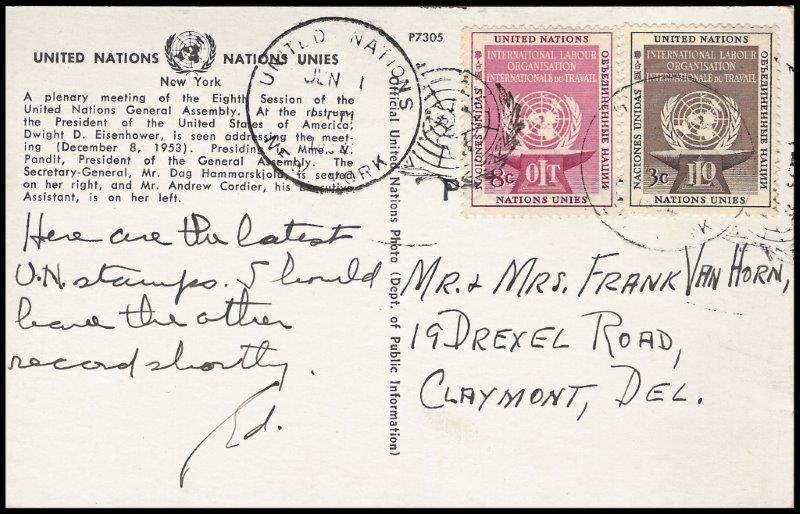 UNITED NATIONS NATIONS UNIES
New York
A plenary meeting of the Eighth Session of the
United Nations General Assembly. At the rostrum,
the President of the United States of America,
Dwight D. Eisenhower, is seen addressing the meet-
ing (December 8, 1953). Presiding is Mme.
Pandit, President of the General Assembly. The
Secretary-General, Mr. Dag Hammarskjold, is seated
on her right, and Mr. Andrew Cordier, his Executive
Assistant, is on her left.
Here are the latest
U.N. stamps. I should
have the other
record shortly.
Ed.
UNITED NATIONS
JUN 1
NEW YORK
P7305
Official United Nations Photo (Dept. of Public Information)
UNITED NATIONS
INTERNATIONAL LABOUR
ORGANISATION
INTERNATIONALE DU TRAVAIL
NACIONES UNIDAS
ОБЪЕДИНЕННЫЕ НАЦИИ
8c OIT
NATIONS UNIES
UNITED NATIONS
INTERNATIONAL LABOUR
ORGANISATION
INTERNATIONALE DU TRAVAIL
NACIONES UNIDAS
ОБЪЕДИНЕННЫЕ НАЦИИ
3c ILO
NATIONS UNIES
MR. & MRS. FRANK VAN HORN,
19 DREXEL ROAD,
CLAYMONT, DEL.